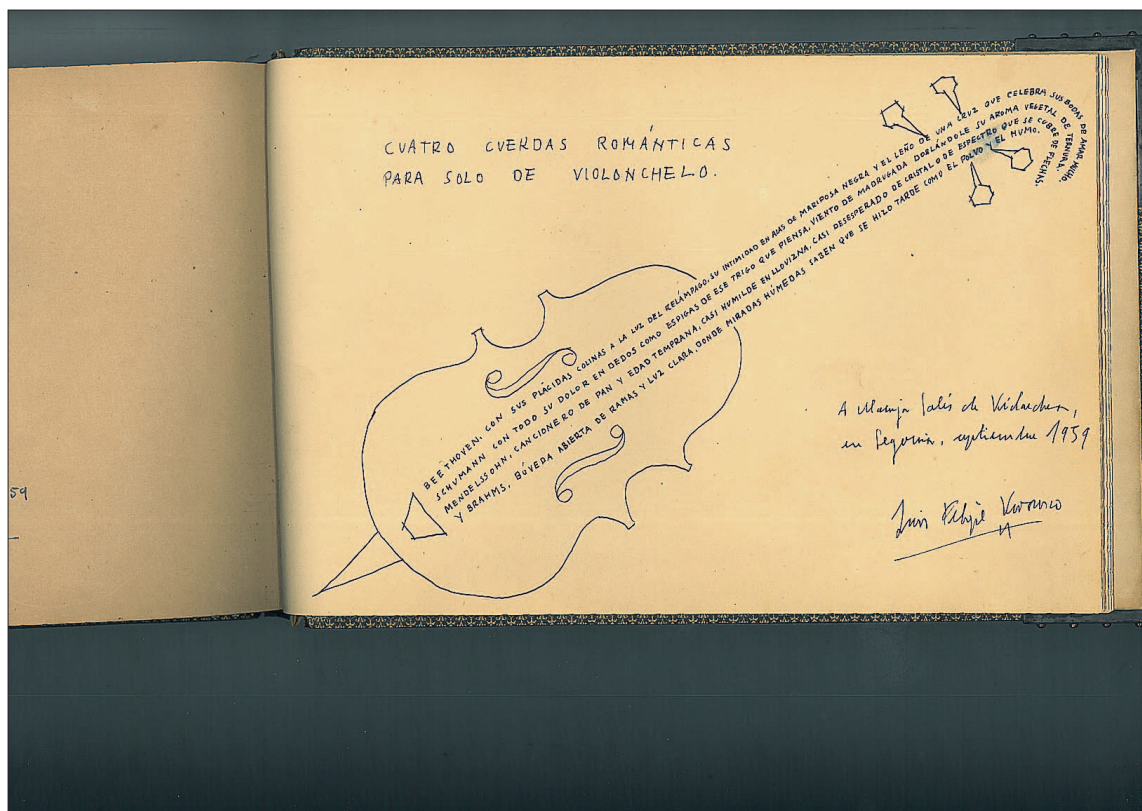 CUATRO CUERDAS ROMÁNTICAS
PARA SOLO DE VIOLONCHELO.
BEETHOVEN, CON SUS PLÁCIDAS COLINAS A LA LUZ DEL RELÁMPAGO, SU INTIMIDAD EN ALAS DE MARIPOSA NEGRA Y EL LEÑO DE UNA CRUZ QUE CELEBRA SUS BODAS DE AMAR MUCHO.
SCHUMANN CON TODO SU DOLOR EN DEDOS COMO ESPIGAS DE ESE TRIGO QUE PIENSA, VIENTO DE MADRUGADA DOBLÁNDOLE SU AROMA VEGETAL DE TERNURA.
MENDELSSOHN, CANCIONERO DE PAN Y EDAD TEMPRANA, CASI HUMILDE EN LLOVIZNA, CASI DESESPERADO DE CRISTAL O DE ESPECTRO QUE SE CUBRE DE FLECHAS.
Y BRAHMS, BÓVEDA ABIERTA DE RAMAS Y LUZ CLARA, DONDE MIRADAS HÚMEDAS SABEN QUE SE HIZO TARDE COMO EL POLVO Y EL HUMO.
A de
en Segovia, septiembre 1959
Luis Felipe Vivanco
59